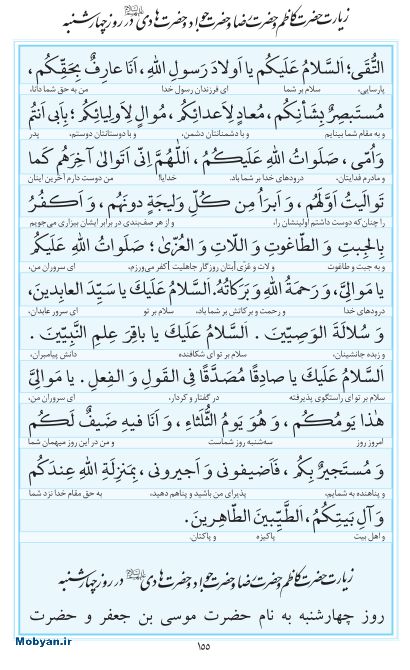 زیارت حضرت کاظم و حضرت رضا و حضرت جواد و حضرت هادی در روز چهارشنبه
التُّقَی؛ اَلسَّلامُ عَلَیکُم یا اَولادَ رَسولِ اللهِ، اَنَا عارِفٌ بِحَقِّکُم،
پارسایی، سلام بر شما ای فرزندان رسول خدا من به حق شما دانا،
مُستَبصِرٌ بِشَأنِکُم، مُعادٍ لِاَعدائِکُم، مُوالٍ لِاَولِیائِکُم؛ بِاَبی اَنتُم
و به مقام شما بینایم و با دشمنانتان دشمن، و با دوستانتان دوستم، پدر
وَ اُمّی، صَلَواتُ اللهِ عَلَیکُم، اَللّٰهُمَّ اِنّی اَتَوالیٰ آخِرَهُم کَما
و مادرم فدایتان، درودهای خدا بر شما باد. خدایا! من دوست دارم آخرین اینان
تَوالَیتُ اَوَّلَهُم، وَ اَبرَأُ مِن کُلِّ وَلیجَةٍ دونَهُم، وَ اَکفُرُ
را چنان که دوست داشتم اولینشان را، و از هر صف‌بندی در برابر ایشان بیزاری می‌جویم
بِالجِبتِ وَ الطّاغوتِ وَ اللّاتِ وَ العُزّیٰ؛ صَلَواتُ اللهِ عَلَیکُم
و به جبت و طاغوت و لات و عُزّی [بتان روزگار جاهلیت] کفر می‌ورزم، ای سروران من،
یا مَوالِیَّ، وَ رَحمَةُ اللهِ وَ بَرَکاتُهُ. اَلسَّلامُ عَلَیکَ یا سَیِّدَ العابِدینَ،
درودهای خدا و رحمت و برکاتش بر شما باد، سلام بر تو ای سرور عابدان،
وَ سُلالَةَ الوَصِیّینَ. اَلسَّلامُ عَلَیکَ یا باقِرَ عِلمِ النَّبِیّینَ.
و زبده جانشینان، سلام بر تو ای شکافنده دانش پیامبران،
اَلسَّلامُ عَلَیکَ یا صادِقًا مُصَدَّقًا فِی القَولِ وَ الفِعلِ. یا مَوالِیَّ
سلام بر تو ای راستگوی پذیرفته در گفتار و کردار، ای سروران من،
هٰذا یَومُکُم، وَ هُوَ یَومُ الثُّلَثاءِ، وَ اَنَا فیهِ ضَیفٌ لَکُم
امروز روز سه‌شنبه روز شماست و من در این روز میهمان شما
وَ مُستَجیرٌ بِکُم، فَاَضیفونی وَ اَجیرونی، بِمَنزِلَةِ اللهِ عِندَکُم
و پناهنده به شمایم، پذیرای من باشید و پناهم دهید، به حق مقام خدا نزد شما
وَ آلِ بَیتِکُمُ، الطَّیِّبینَ الطّاهِرینَ.
و اهل بیت پاکیزه و پاکتان.
زیارت حضرت کاظم و حضرت رضا و حضرت جواد و حضرت هادی در روز چهارشنبه
روز چهارشنبه به نام حضرت موسی بن جعفر و حضرت
Mobyan.ir
۱۵۵